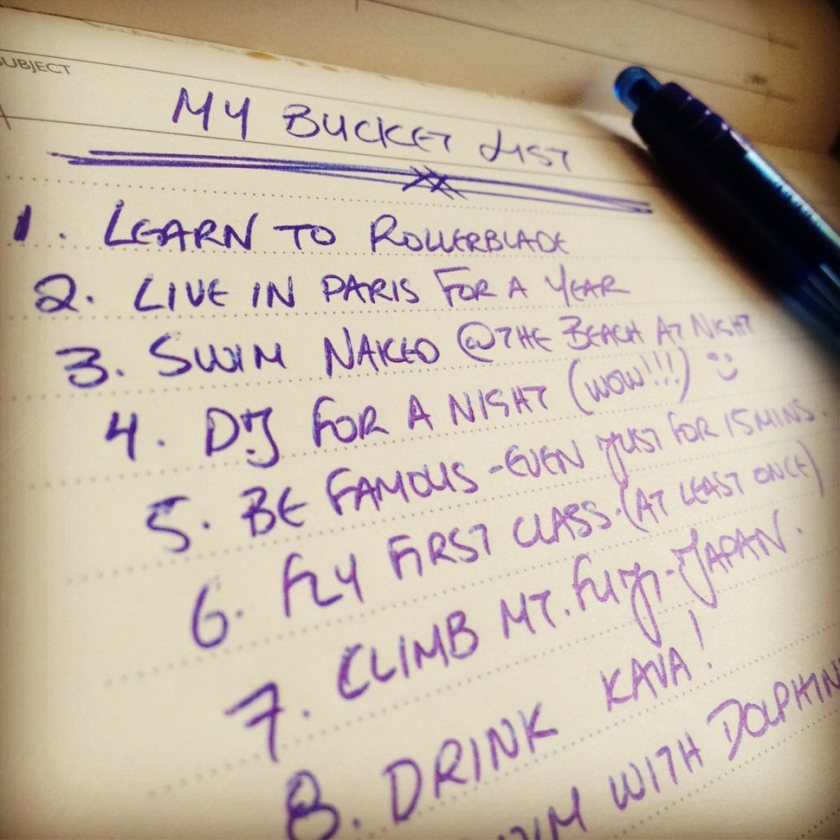 SUBJECT
MY BUCKET LIST
1. LEARN TO ROLLERBLADE
2. LIVE IN PARIS FOR A YEAR
3. SWIM NAKED @ THE BEACH AT NIGHT
4. DJ FOR A NIGHT (WOW!!!) :)
5. BE FAMOUS - EVEN JUST FOR 15 MINS.
6. FLY FIRST CLASS. (AT LEAST ONCE)
7. CLIMB MT. FUJI - JAPAN.
8. DRINK KAVA!
WITH DOLPHIN